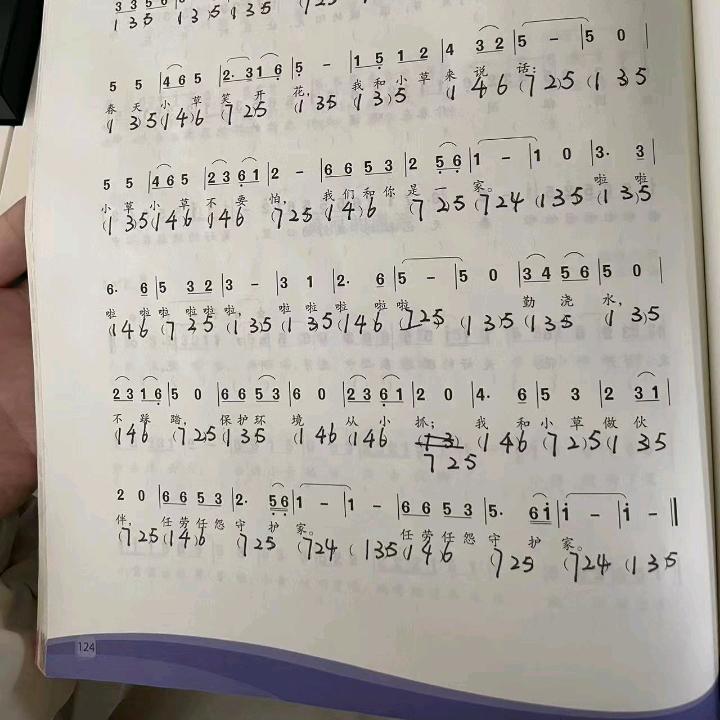 5 5 | 4 6 5 | 2· 3 1 6 | 5 - | 1 5 1 2 | 4 3 2 | 5 - | 5 0 |
春天小草笑开花，我和小草来说话；
(1 3)5 (1 4)6 (7 2)5 (1 35 (1 3)5 (1 4 6 (7 2)5 (1 3 5
5 5 | 4 6 5 | 2 3 6 1 | 2 - | 6 6 5 3 | 2 5 6 | 1 - | 1 0 | 3· 3 |
小草小草不要怕，我们和你是一家。啦啦
(1 3)5 (1 4 6 (1 4 6 (7 2 5 (1 4)6 (7 2)5 (7 2 4 (1 3 5 (1 3)5
6· 6 | 5 3 2 | 3 - | 3 1 | 2· 6 | 5 - | 5 0 | 3 4 5 6 | 5 0 |
啦啦啦啦啦，啦啦啦啦啦 勤浇水，
(1 4 6 (7 2 5 (1 3)5 (1 3)5 (1 4 6 (7 2 5 (1 3)5 (1 3 5 (1 3)5
2 3 1 6 | 5 0 | 6 6 5 3 | 6 0 | 2 3 6 1 | 2 0 | 4· 6 | 5 3 | 2 3 1 |
不踩踏，保护环境从小抓；我和小草做伙
(1 4 6 (7 2)5 (1 3 5 (1 4 6 (1 4 6 (1 4 6 (7 2)5 (1 3 5
7 2 5
2 0 | 6 6 5 3 | 2· 5 6 | 1 - | 1 - | 6 6 5 3 | 5· 6 i | i - | i - ‖
伴，任劳任怨守护家。任劳任怨守护家。
(7 2 5 (1 4)6 (7 2 5 (7 2 4 (1 3 5 (1 4 6 (7 2 5 (7 2 4 (1 3 5
124